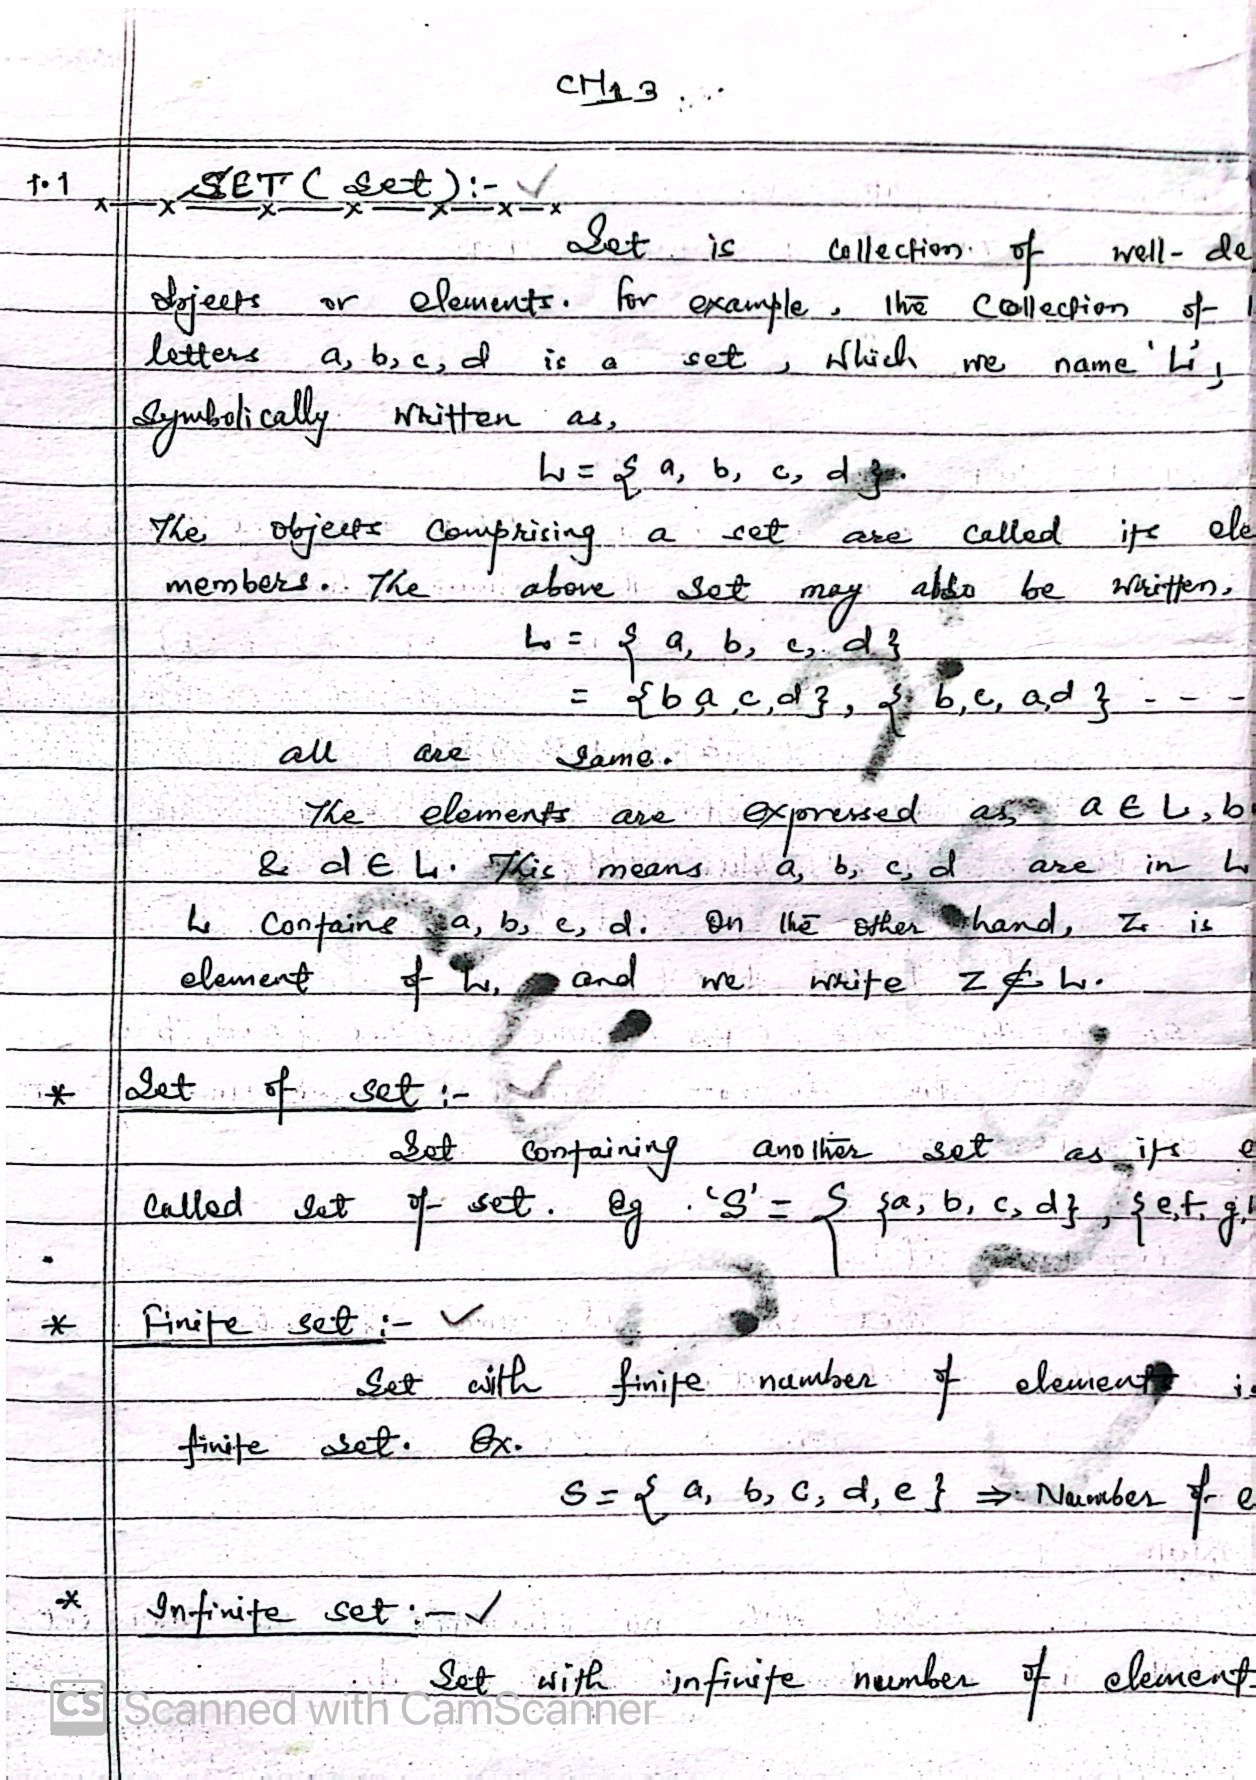 CH 13
1.1 SET ( Set ) :- ✓
Set is collection of well- de
objects or elements. for example, the Collection of
letters a, b, c, d is a set, which we name 'L',
Symbolically written as,
L = { a, b, c, d }.
The objects comprising a set are called its ele
members. The above set may also be written,
L = { a, b, c, d }
= { b a, c, d }, { b, c, a, d } - - -
all are same.
The elements are expressed as, a ∈ L, b
& d ∈ L. This means a, b, c, d are in L
L contains a, b, c, d. On the other hand, Z is
element of L, and we write Z ∉ L.
* Set of set :- ✓
Set containing another set as its e
called set of set. eg. 'S' = { {a, b, c, d}, {e, f, g, h
* Finite set :- ✓
Set with finite number of elements is
finite set. Ex.
S = { a, b, c, d, e } ⇒ Number of e
* Infinite set :- ✓
Set with infinite number of element
CS Scanned with CamScanner